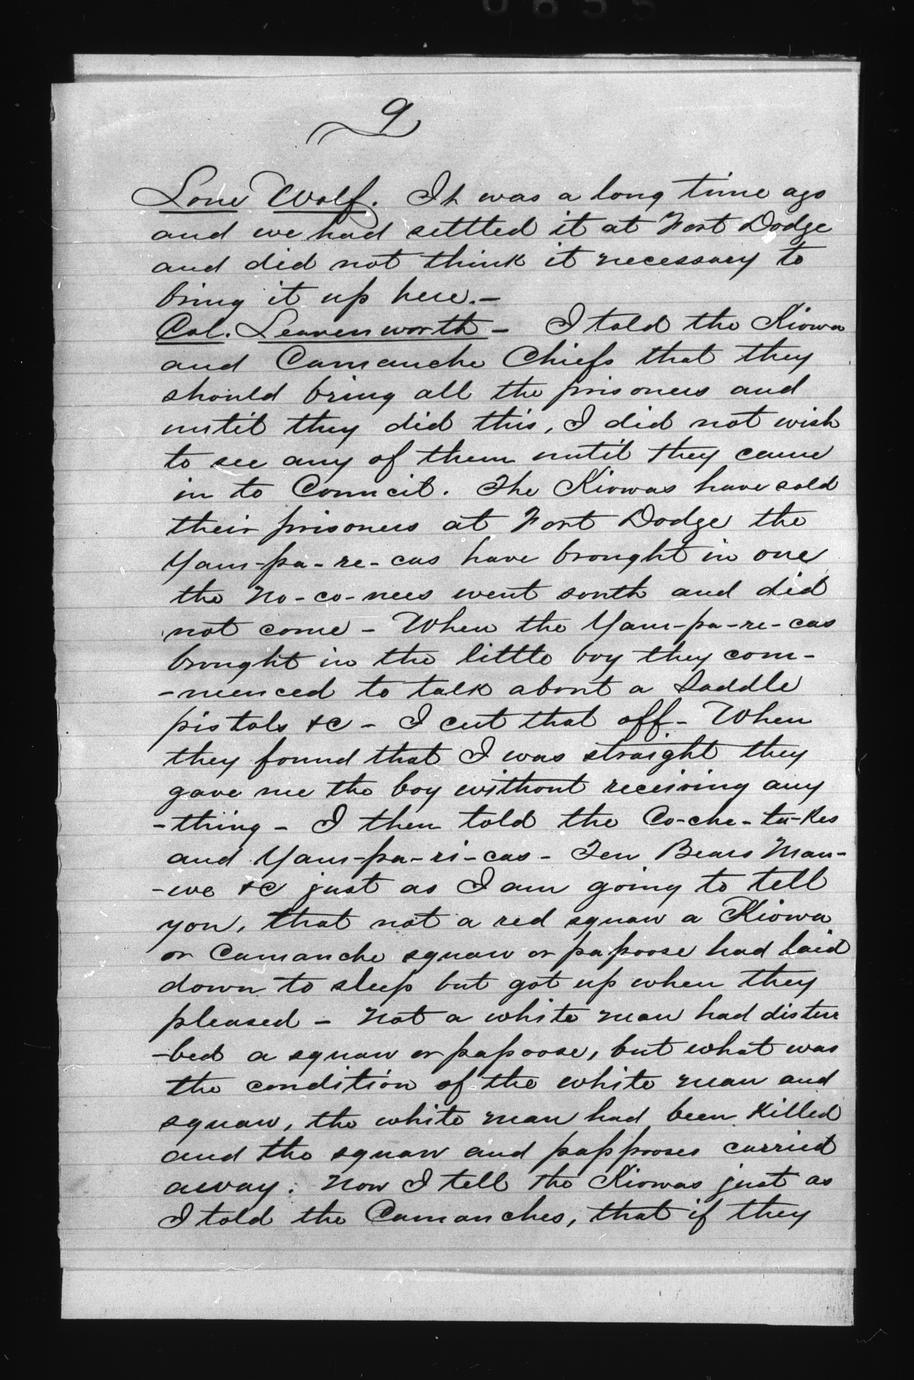 9
Lone Wolf. It was a long time ago
and we had settled it at Fort Dodge
and did not think it necessary to
bring it up here.—
Col. Leavenworth — I told the Kiowa
and Camanche Chiefs that they
should bring all the prisoners and
until they did this, I did not wish
to see any of them until they came
in to Council. The Kiowas have sold
their prisoners at Fort Dodge the
Yam-pa-re-cas have brought in one
the No-co-nees went south and did
not come — When the Yam-pa-re-cas
brought in the little boy they com-
-menced to talk about a Saddle
pistols &c — I cut that off — When
they found that I was straight they
gave me the boy without receiving any
-thing — I then told the Co-che-ta-kes
and Yam-pa-ri-cas — Ten Bears Man-
-we &c just as I am going to tell
you, that not a red squaw a Kiowa
or Camanche squaw or papoose had laid
down to sleep but got up when they
pleased — Not a white man had distur
-bed a squaw or papoose, but what was
the condition of the white man and
squaw, the white man had been killed
and the squaw and pappooses carried
away. Now I tell the Kiowas just as
I told the Camanches, that if they